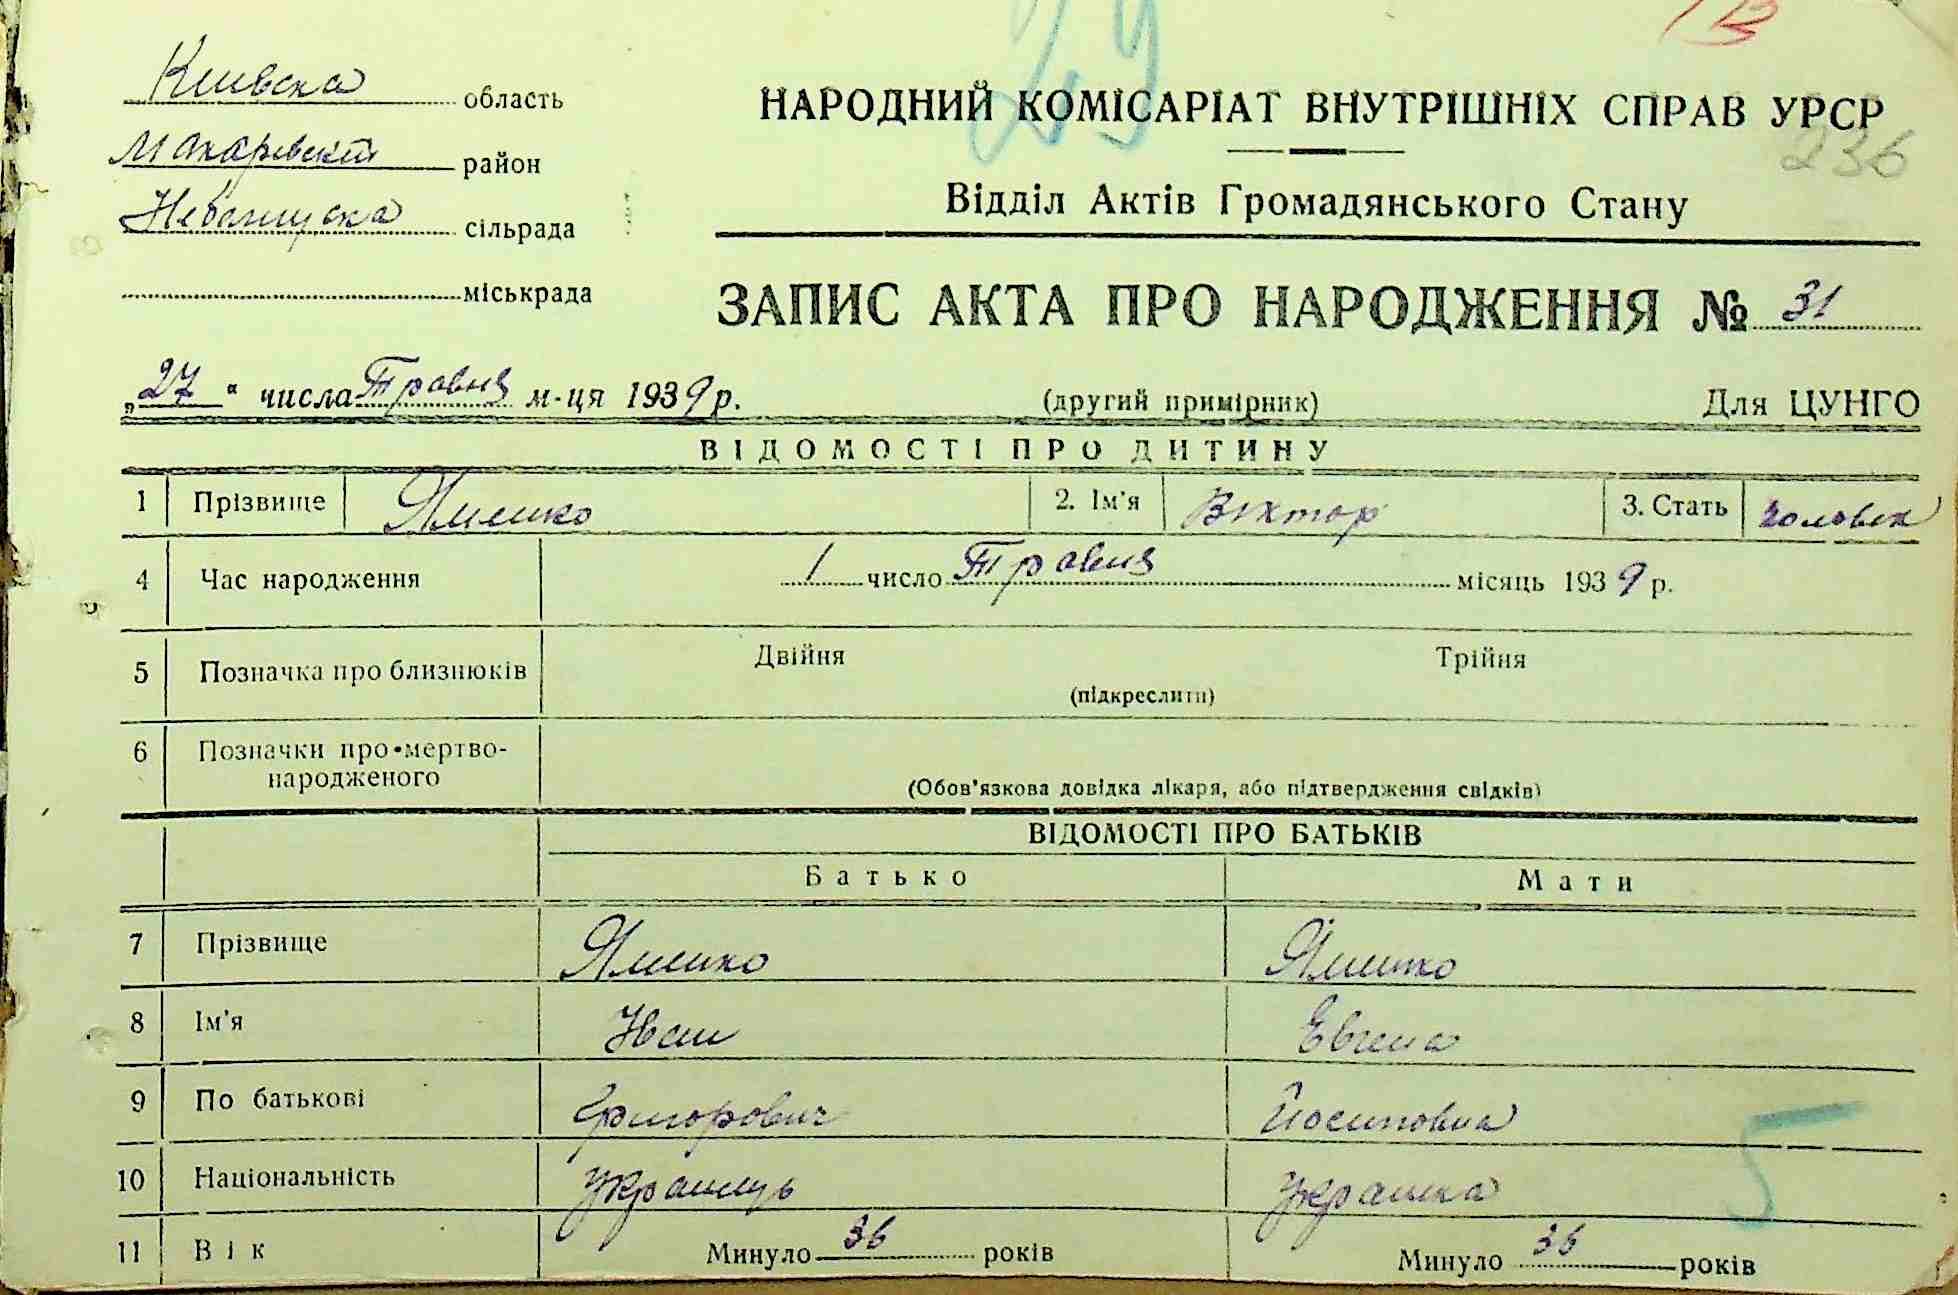 29
13
Київска область
Макарівский район
Небелицска сільрада
міськрада
НАРОДНИЙ КОМІСАРІАТ ВНУТРІШНІХ СПРАВ УРСР
236
Відділ Актів Громадянського Стану
ЗАПИС АКТА ПРО НАРОДЖЕННЯ № 31
„27“ числа Травня м-ця 1939 р. (другий примірник) Для ЦУНГО
ВІДОМОСТІ ПРО ДИТИНУ
1 Прізвище 2. Ім'я Віктор 3. Стать чоловіч
4 Час народження 1 число Травня місяць 1939 р.
5 Позначка про близнюків Двійня Трійня
(підкреслити)
6 Позначки про мертво-
народженого
(Обов'язкова довідка лікаря, або підтвердження свідків)
ВІДОМОСТІ ПРО БАТЬКІВ
Батько Мати
7 Прізвище
8 Ім'я Іван Евгена
9 По батькові Григорович Йосиповна
10 Національність українець українка
5
11 Вік Минуло 36 років Минуло 36 років